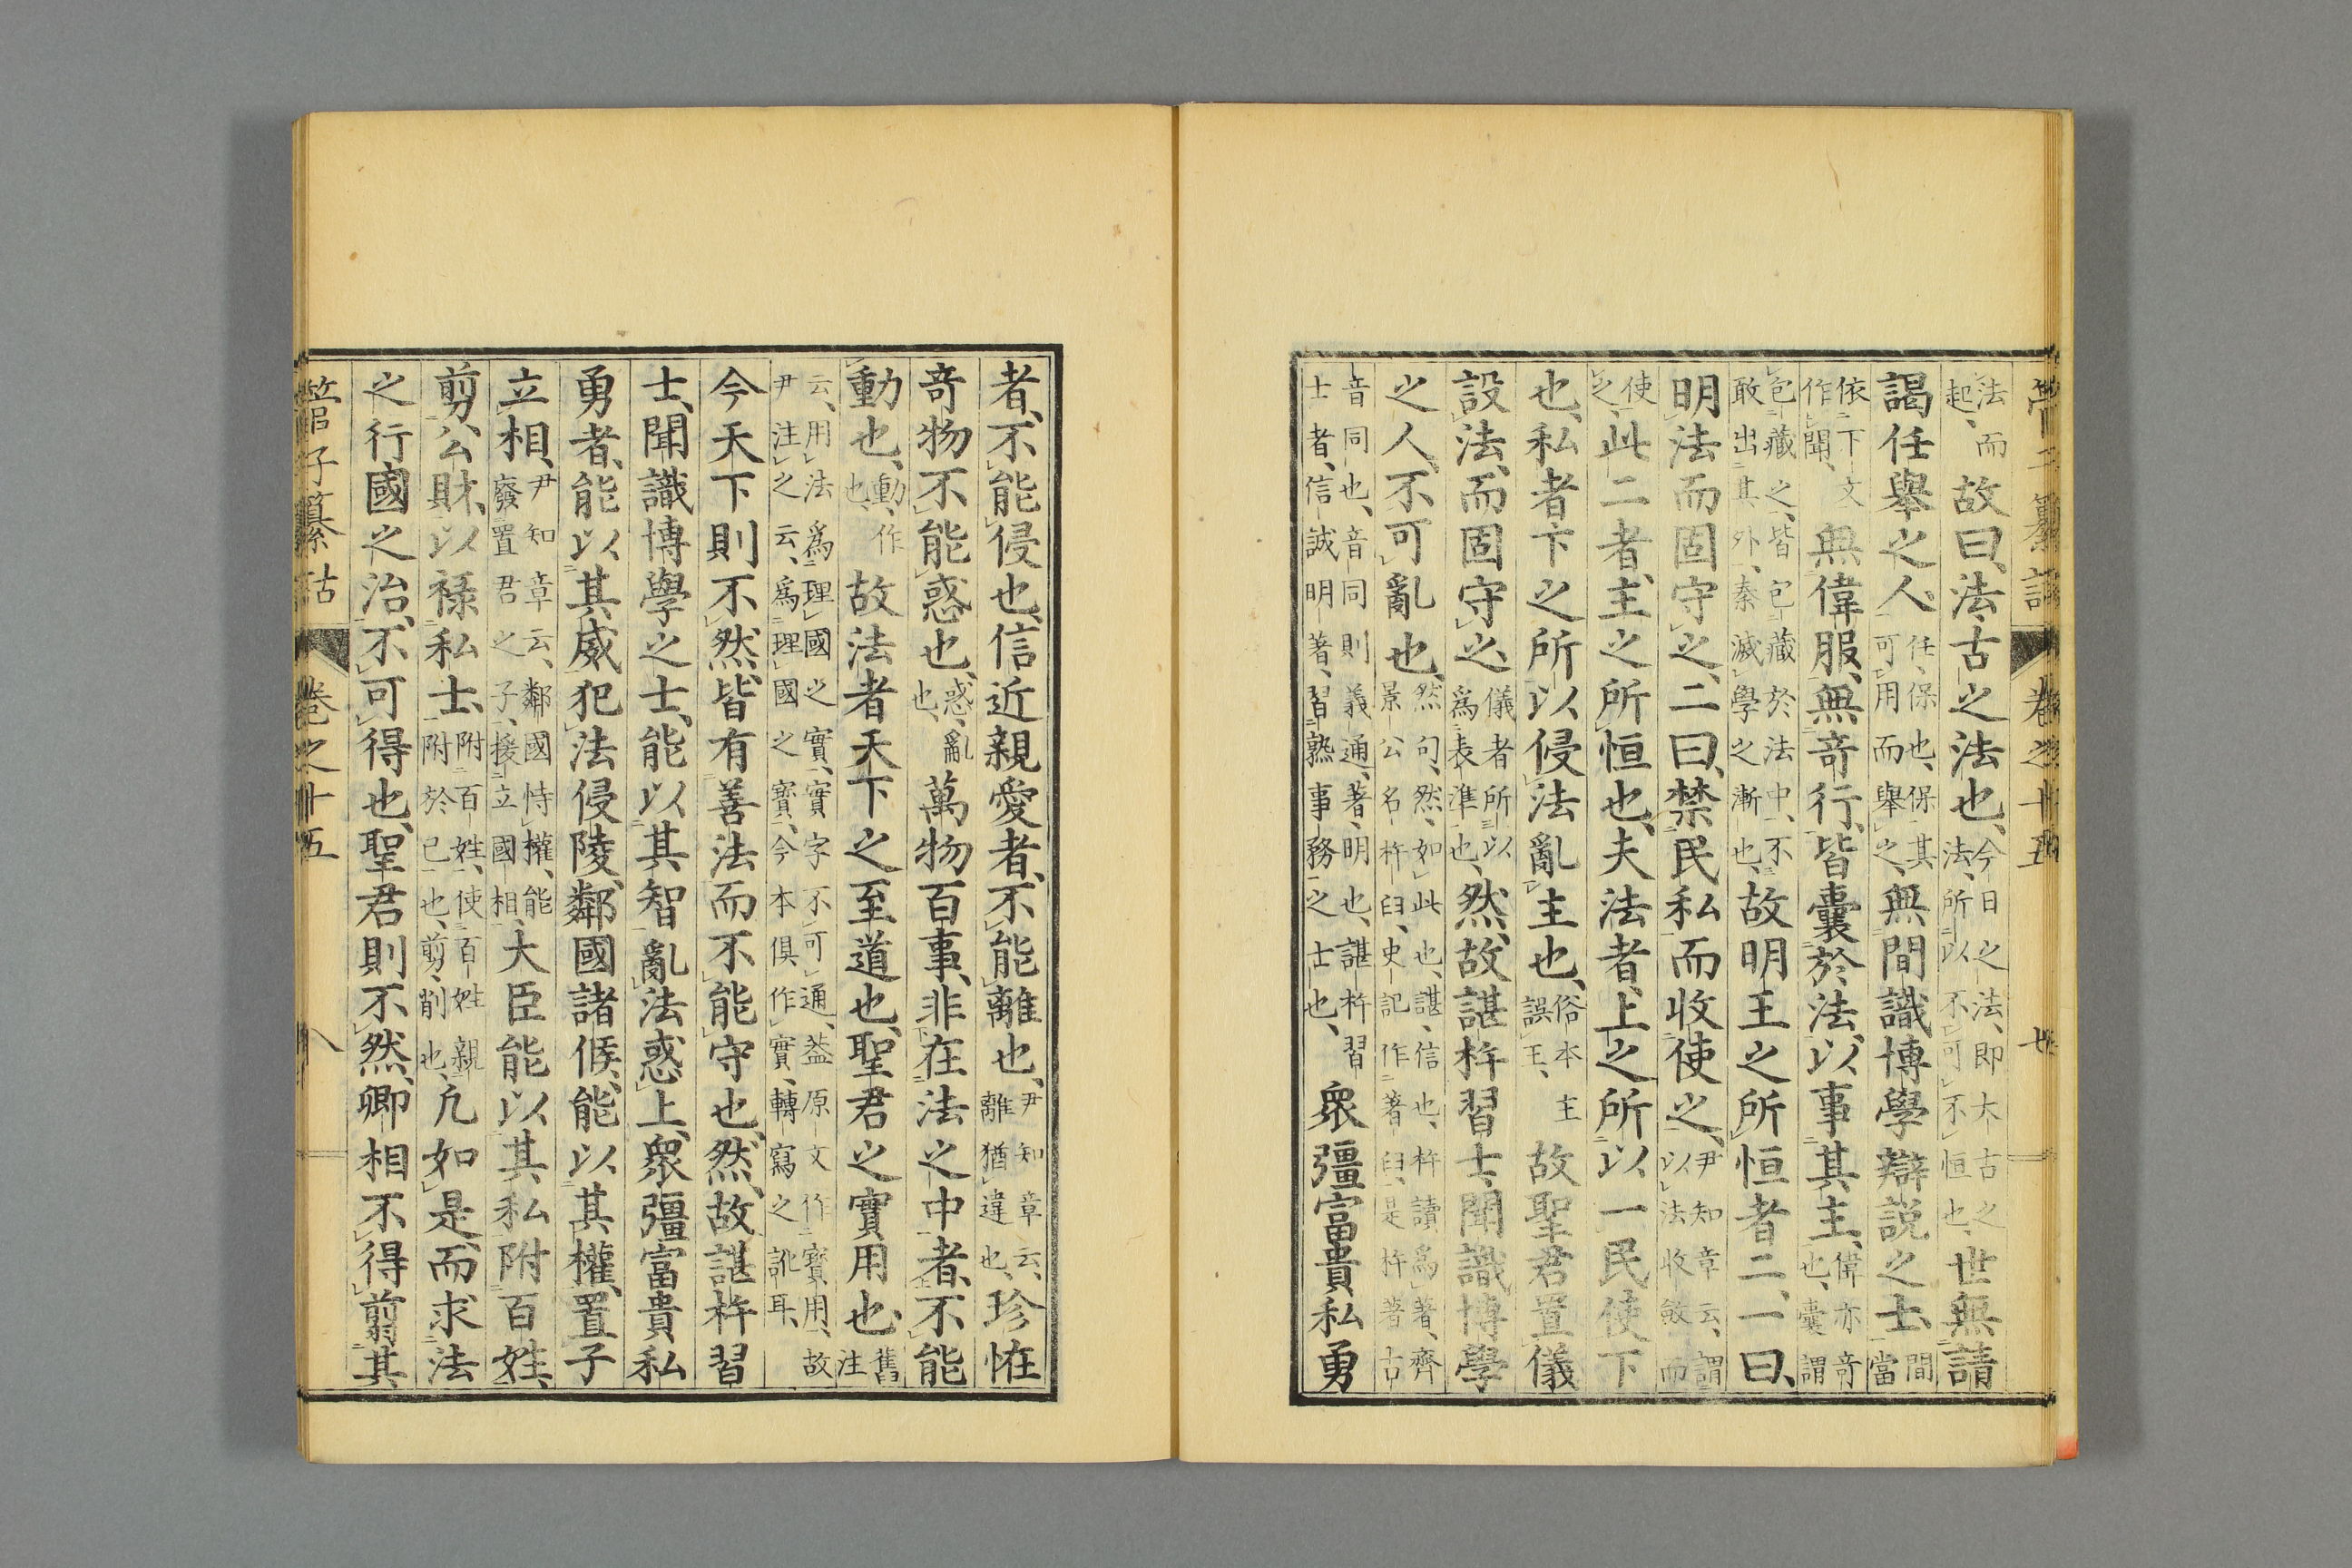 管子纂詁 卷之十五 七
法而起、故曰、法、古之法也、今日之法、即大古之法、所以不可不恒也、世無請
謁任舉之人、任、保也、保其可用而舉之、無間識博學辯説之士、間當
依下文作聞、無偉服、無奇行、皆囊於法、以事其主、偉亦奇也、囊謂
包藏之、皆包藏於法中、不敢出其外、秦滅學之漸也、故明王之所恒者二、一曰、
明法而固守之、二曰、禁民私而收使之、尹知章云、謂以法收斂而
使之、此二者、主之所恒也、夫法者、上之所以一民使下
也、私者下之所以侵法亂主也、俗本主誤王、故聖君置儀
設法、而固守之、儀者所以爲表準也、然、故諶杵習士、聞識博學
之人、不可亂也、然句、然、如此也、諶、信也、杵讀爲著、齊景公名杵臼、史記作著臼、是杵著古
音同也、音同則義通、著、明也、諶杵習士者、信誠明著、習熟事務之士也、衆彊富貴私勇
者、不能侵也、信近親愛者、不能離也、尹知章云、離猶違也、珍恠
奇物不能惑也、惑、亂也、萬物百事、非在法之中者、不能
動也、動、作也、故法者天下之至道也、聖君之實用也、舊注
云、用法爲理國之實、實字不可通、葢原文作寳用、故尹注之云、爲理國之寳、今本俱作實、轉寫之訛耳、
今天下則不然、皆有善法而不能守也、然、故諶杵習
士、聞識博學之士、能以其智亂法惑上、衆彊富貴私
勇者、能以其威犯法侵陵、鄰國諸侯、能以其權、置子
立相、尹知章云、鄰國恃權、能廢置君之子、援立國相、大臣能以其私附百姓、
剪公財、以祿私士、附百姓、使百姓親附於己也、剪、削也、凢如是而求法
之行國之治、不可得也、聖君則不然、卿相不得翦其
管子纂詁 卷之十五 八